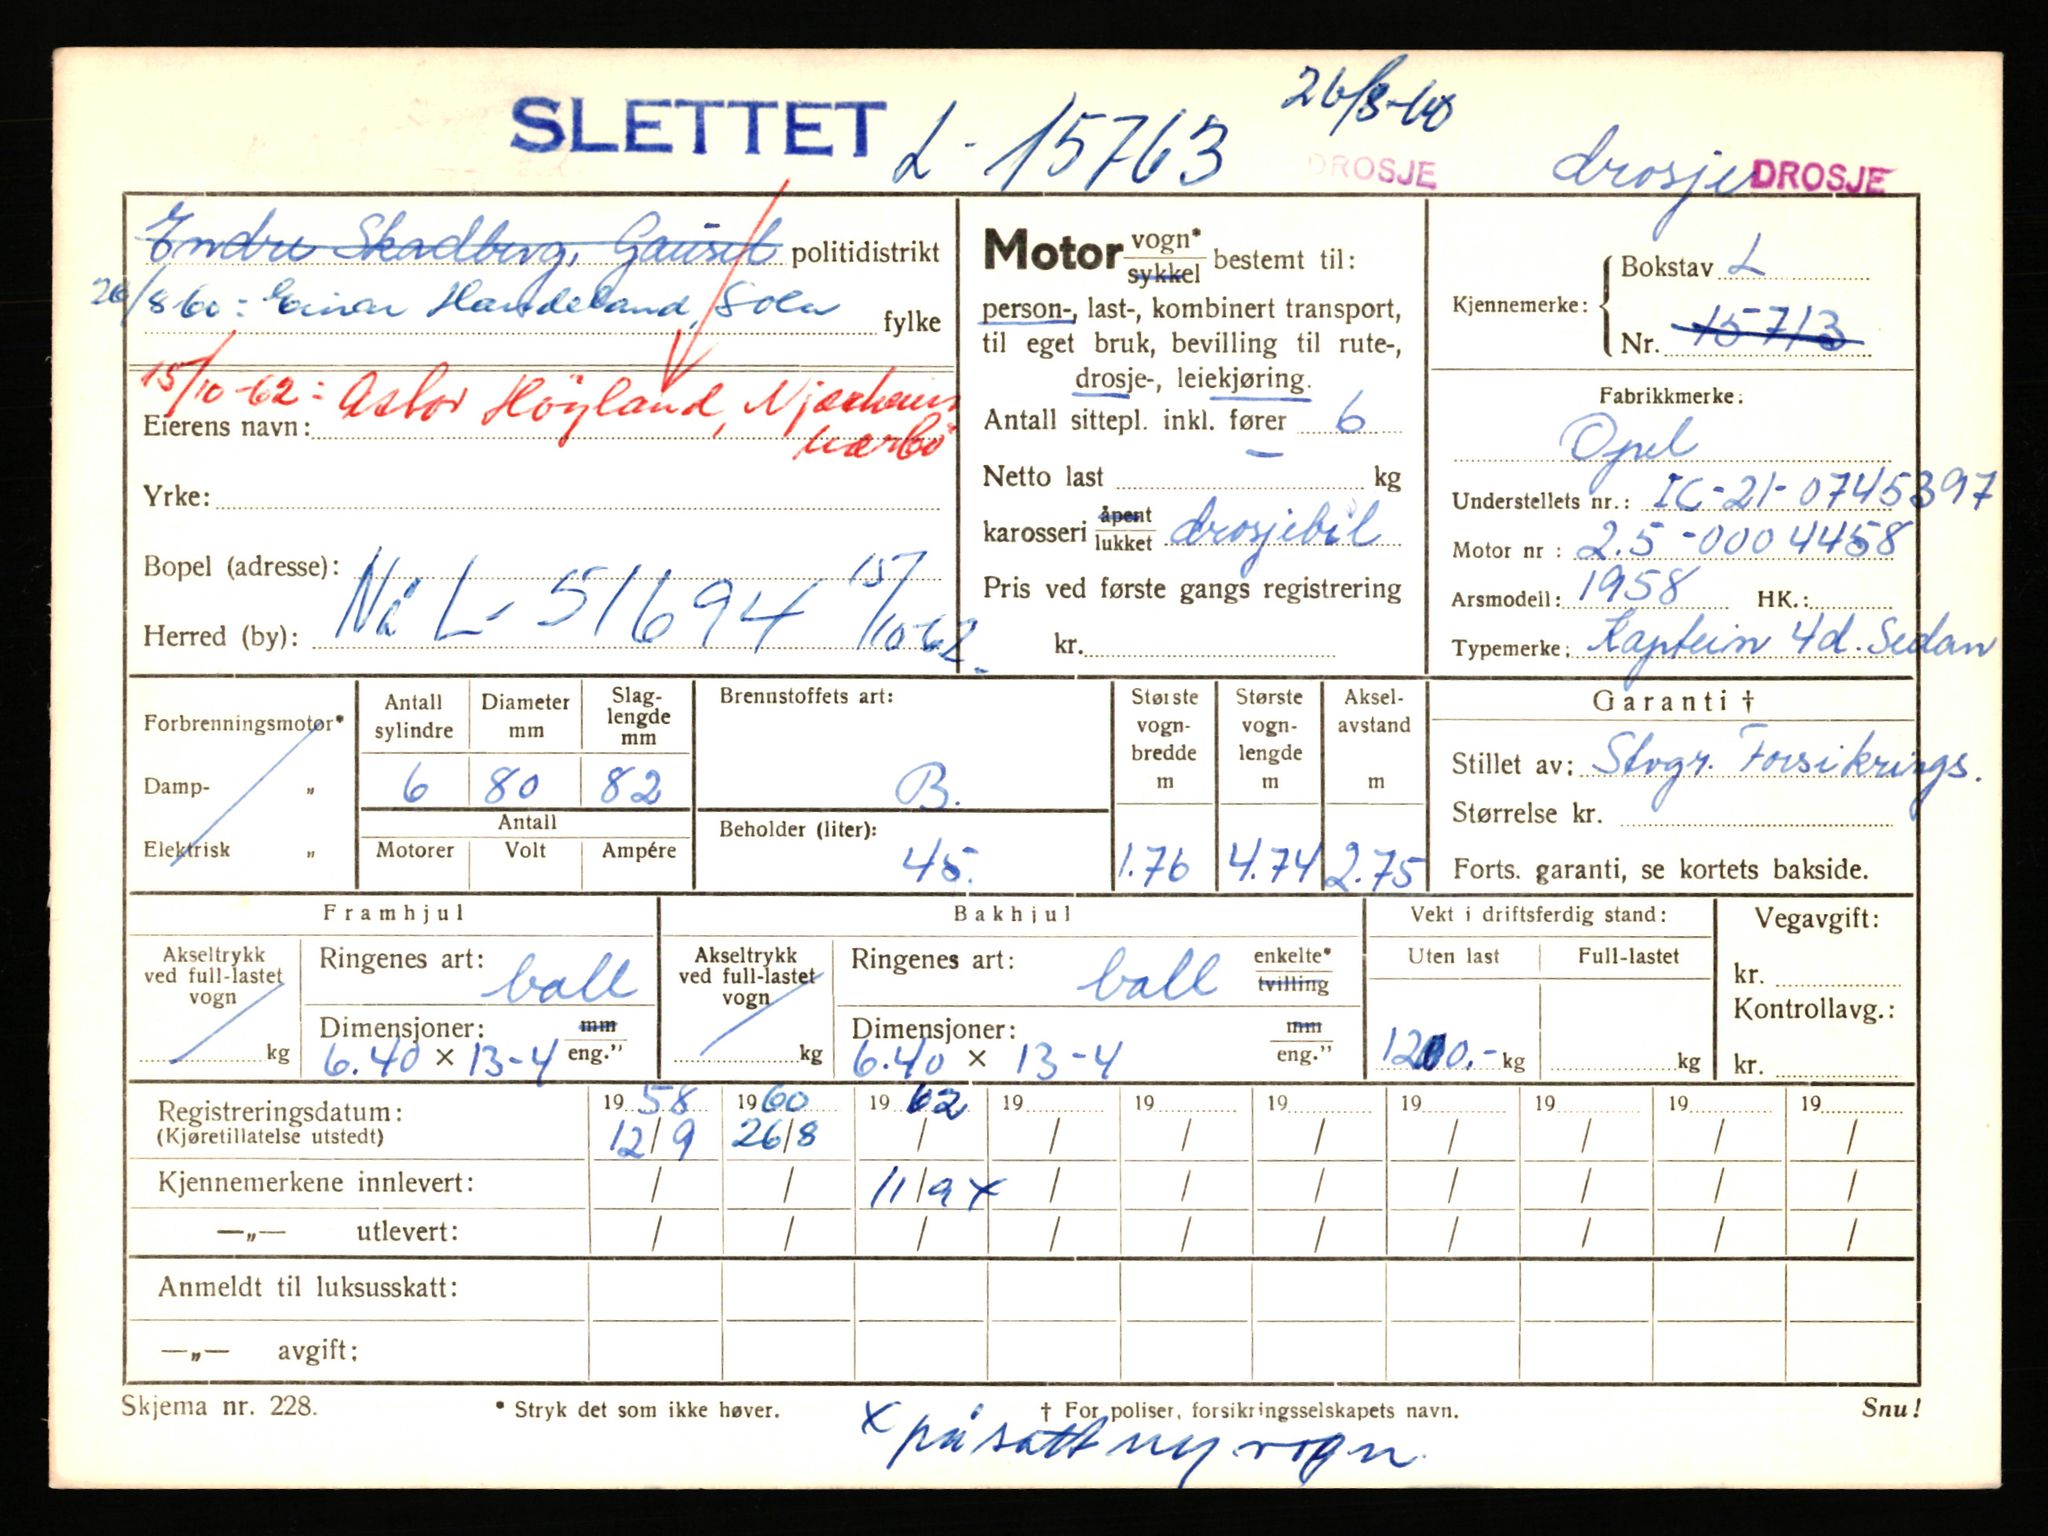 SLETTET L-15763 26/8-60
DROSJE drosje DROSJE
Endre Skadberg, Gausel politidistrikt
26/8 60: Einar Handeland, Sola fylke
15/10-62: Astor Höyland, Njærheim
Eierens navn: Nærbö
Yrke:
Bopel (adresse):
Herred (by): Nå L-51694 15/10-62.
Motor vogn* sykkel bestemt til:
person-, last-, kombinert transport,
til eget bruk, bevilling til rute-,
drosje-, leiekjøring.
Antall sittepl. inkl. fører 6
Netto last — kg
karosseri åpent lukket drosjebil
Pris ved første gangs registrering
kr.
Kjennemerke: Bokstav L
Nr. 15713
Fabrikkmerke:
Opel
Understellets nr.: IC-21-0745397
Motor nr: 2.5-0004458
Arsmodell: 1958 HK.:
Typemerke: Kaptein 4d. Sedan
Forbrenningsmotor*
Damp- „
Elektrisk „
Antall sylindre 6
Diameter mm 80
Slag-lengde mm 82
Antall
Motorer Volt Ampére
Brennstoffets art:
B.
Beholder (liter):
45.
Største vogn-bredde m 1.76
Største vogn-lengde m 4.74
Aksel-avstand m 2.75
Garanti †
Stillet av: Stvgr. Forsikrings.
Størrelse kr.
Forts. garanti, se kortets bakside.
Framhjul
Akseltrykk ved full-lastet vogn kg
Ringenes art: ball
Dimensjoner: mm
6.40 × 13-4 eng.”
Bakhjul
Akseltrykk ved full-lastet vogn kg
Ringenes art: ball enkelte* tvilling
Dimensjoner: mm
6.40 × 13-4 eng.”
Vekt i driftsferdig stand:
Uten last Full-lastet
kg kg
Vegavgift:
kr.
Kontrollavg.:
kr.
Registreringsdatum: 19 58 19 60 19 62 19 19 19 19 19 19 19
(Kjøretillatelse utstedt) 12/9 26/8 / / / / / / / /
Kjennemerkene innlevert: / / 11/9 x / / / / / / /
—„— utlevert: / / / / / / / / / /
Anmeldt til luksusskatt:
—„— avgift:
Skjema nr. 228. * Stryk det som ikke høver. † For poliser, forsikringsselskapets navn. Snu!
x påsatt ny vogn.